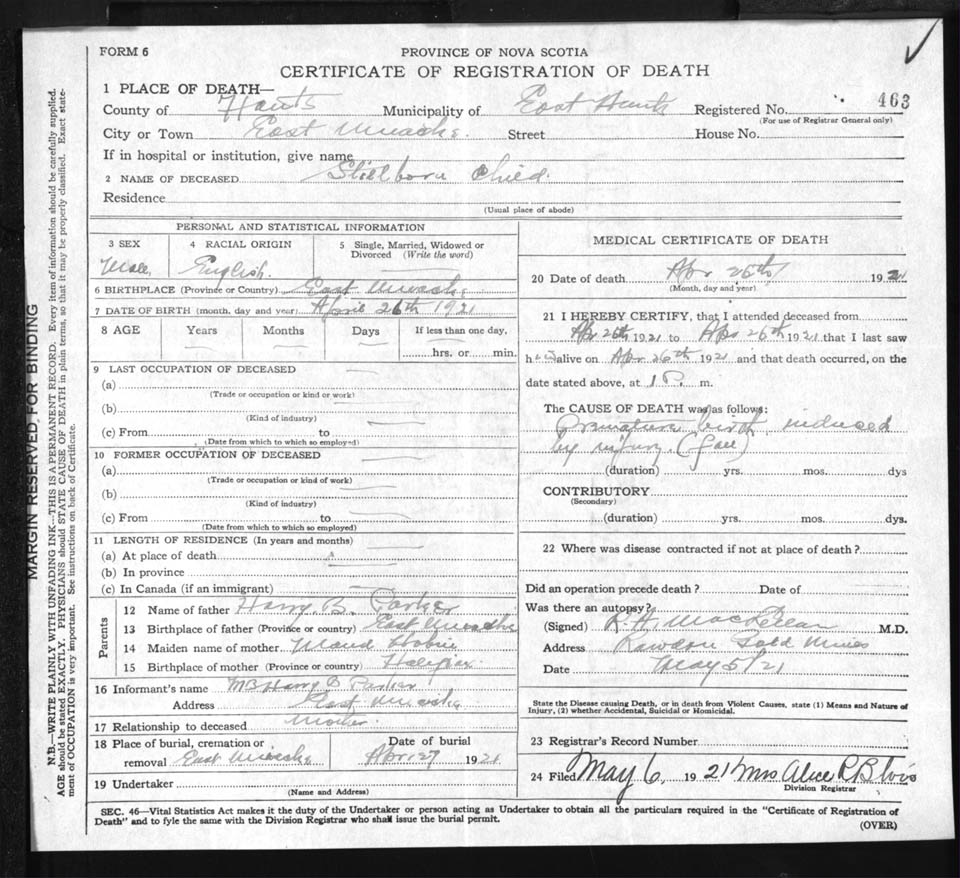 FORM 6
PROVINCE OF NOVA SCOTIA
CERTIFICATE OF REGISTRATION OF DEATH
1 PLACE OF DEATH—
County of Hants Municipality of East Hants Registered No. 463
(For use of Registrar General only)
City or Town East Uniacke. Street House No.
If in hospital or institution, give name
2 NAME OF DECEASED Stillborn Child.
Residence
(Usual place of abode)
PERSONAL AND STATISTICAL INFORMATION
3 SEX
Male,
4 RACIAL ORIGIN
English.
5 Single, Married, Widowed or Divorced (Write the word)
6 BIRTHPLACE (Province or Country) East Uniacke
7 DATE OF BIRTH (month, day and year) April 26th 1921
8 AGE Years Months Days If less than one day,
hrs. or min.
9 LAST OCCUPATION OF DECEASED
(a)
(Trade or occupation or kind or work)
(b)
(Kind of industry)
(c) From to
(Date from which to which so employed)
10 FORMER OCCUPATION OF DECEASED
(a)
(Trade or occupation or kind of work)
(b)
(Kind of industry)
(c) From to
(Date from which to which so employed)
11 LENGTH OF RESIDENCE (In years and months)
(a) At place of death
(b) In province
(c) In Canada (if an immigrant)
Parents
12 Name of father Harry B. Parker
13 Birthplace of father (Province or country) East Uniacke
14 Maiden name of mother Maud
15 Birthplace of mother (Province or country) Halifax
16 Informant's name Mrs Harry B Parker
Address East Uniacke
17 Relationship to deceased Mother.
18 Place of burial, cremation or removal East Uniacke
Date of burial
Apr 27 1921
19 Undertaker
(Name and Address)
MEDICAL CERTIFICATE OF DEATH
20 Date of death Apr 26th 1921
(Month, day and year)
21 I HEREBY CERTIFY, that I attended deceased from
Apr 26th 1921 to Apr 26th 1921 that I last saw
h alive on Apr 26th 1921 and that death occurred, on the
date stated above, at 1 P. m.
The CAUSE OF DEATH was as follows:
Premature birth induced
by injury. (fall)
(duration) yrs. mos. dys
CONTRIBUTORY
(Secondary)
(duration) yrs. mos. dys.
22 Where was disease contracted if not at place of death?
Did an operation precede death? Date of
Was there an autopsy?
(Signed) R. A. MacLellan M.D.
Address Rawdon Gold Mines
Date May 5/21
State the Disease causing Death, or in death from Violent Causes, state (1) Means and Nature of
Injury, (2) whether Accidental, Suicidal or Homicidal.
23 Registrar's Record Number
24 Filed May 6, 1921 Mrs Alice R
Division Registrar
SEC. 46—Vital Statistics Act makes it the duty of the Undertaker or person acting as Undertaker to obtain all the particulars required in the "Certificate of Registration of
Death" and to fyle the same with the Division Registrar who shall issue the burial permit.
(OVER)
MARGIN RESERVED FOR BINDING
N.B.—WRITE PLAINLY WITH UNFADING INK—THIS IS A PERMANENT RECORD. Every item of information should be carefully supplied.
AGE should be stated EXACTLY. PHYSICIANS should STATE CAUSE OF DEATH in plain terms, so that it may be properly classified. Exact state-
ment of OCCUPATION is very important. See instructions on back of Certificate.